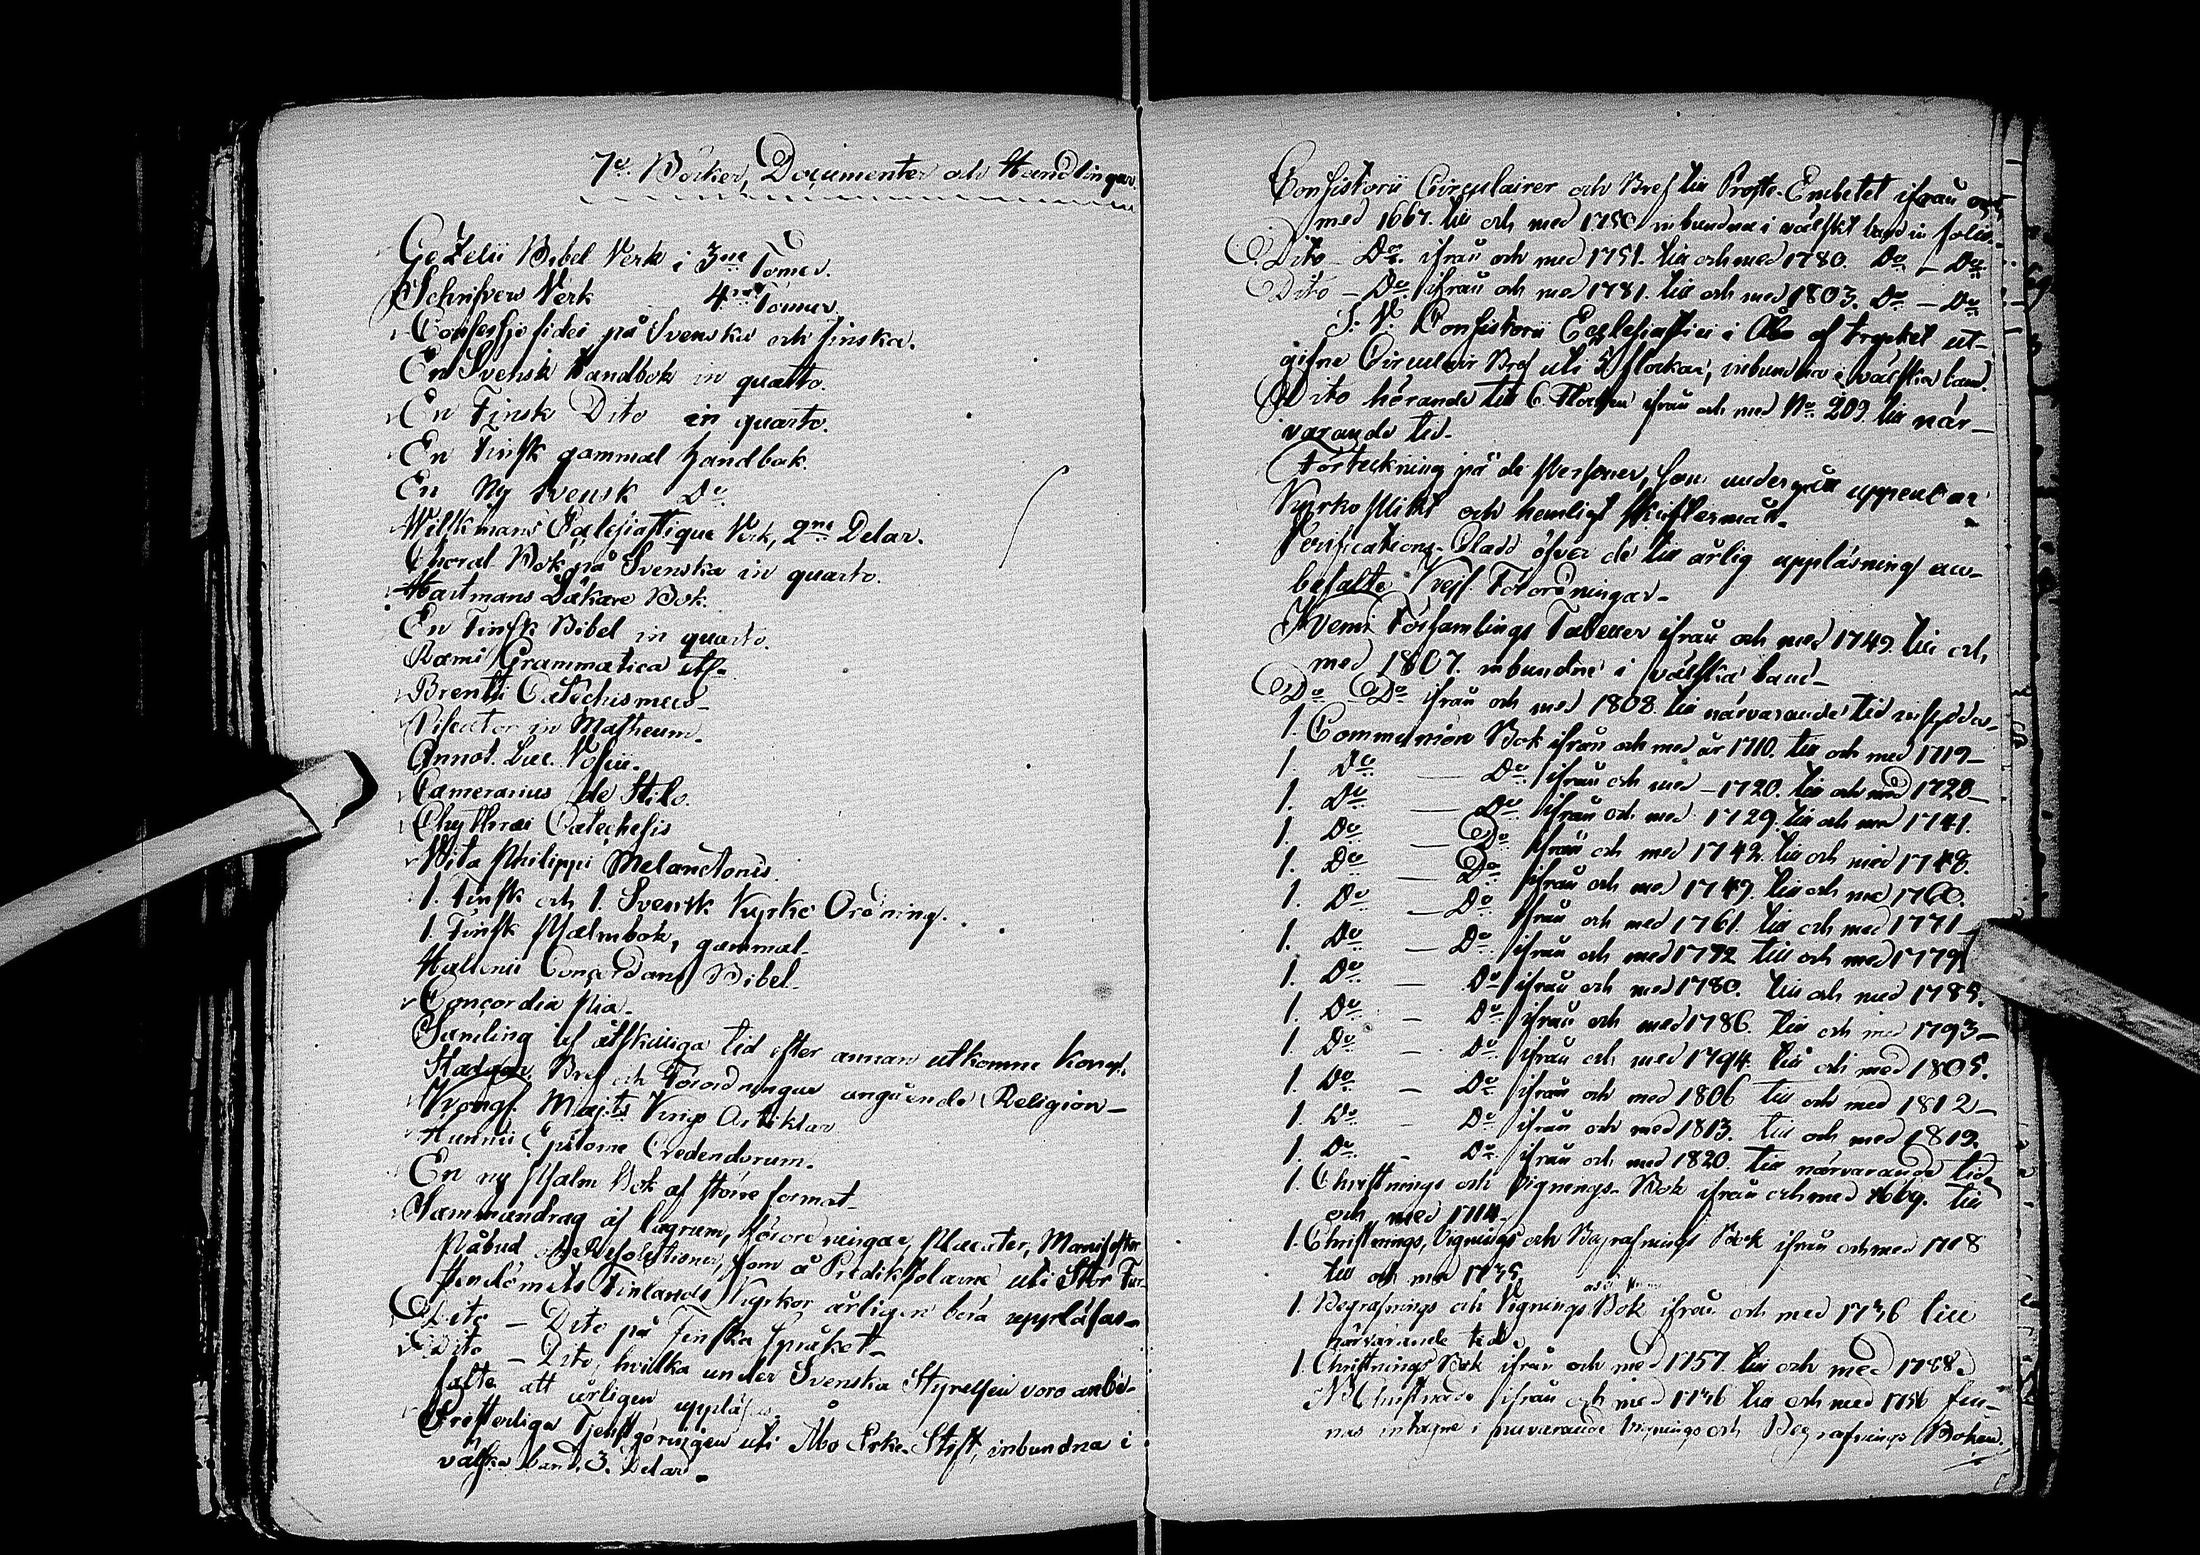 7o. Böcker, Documenter och Handlingar.
Gezelii Bibel Verk i 3ne Tomer.
Schrifvers Verk 4ra Tomer.
Confessio fidei på Svenska och finska.
En Svensk Handbok in quarto.
En Finsk Dito in quarto.
En Finsk gammal handbok.
En Ny Svensk Do
Wilkmans Eclesiastique Verk, 2ne Delar.
Choral Bok på Svenska in quarto.
Hartmans Läkare Bok.
En Finsk Bibel in quarto.
Rami Grammatica
Brentii Catechismus
Piscator in Matheum.
Annot. Luc.
Camerarius de Stilo.
Chythræi Catechesis
Vita Philippi Melanctonis.
1. Finsk och 1. Svensk Kyrko Ordning.
1. Finsk Psalmbok, gammal.
Hallenii Concordans Bibel.
Concordia Pia.
Samling af åtskilliga tid efter annan utkomne Kongl.
Stadgar, Bref och Förordningar angående Religion
Krongl. Majts Krigs Artiklar
Hunnii Epitome Credendorum.
En ny Psalm Bok af större format
Sammandrag af lagrum, förordningar, Placater, Manifester
Påbud och Resolutioner, som å Predikstolarne uti Stor Fur-
stendömets Finlands Kyrkor årligen böra uppläsas
Dito - Dito på Finska språket
Dito - Dito, hvilka under Svenska Styrelsen voro anbe-
falte att årligen uppläsas
Presterliga Tjenstgöringen uti Åbo Erke-Stift, inbundna i
välska band 3. Delar
Consistorii Circulairer och Bref till Proste-Embetet ifrån och
med 1667. till och med 1750 inbundna i välskt band in folio.
Dito - Do. ifrån och med 1751. till och med 1780. Do - Do
Dito - Do. ifrån och med 1781. till och med 1803. Do - Do
S. V. Consistorii Ecclesiastici i Åbo af trycket ut-
gifne Circulair Bref uti 5 flockar, inbundna i välska band.
Dito hörande till 6. Flocken ifrån och med No. 209. till när-
varande tid.
Förteckning på de Personer, som undergått uppenbar
Kyrkoplikt och hemligt Skriftermål.
Verifications Blad öfver de till årlig uppläsning an-
befalte Förordningar
Kemi Församlings Tabeller ifrån och med 1749. till och
med 1807. inbundne i välska band
Do - Do ifrån och med 1808. till närvarande tid
1. Communion Bok ifrån och med år 1710. till och med 1719
1. Do — Do ifrån och med - 1720. till och med 1728
1. Do — Do ifrån och med 1729. till och med 1741.
1. Do — Do ifrån och med 1742. till och med 1748.
1. Do — Do ifrån och med 1749. till och med 1760.
1. Do — Do ifrån och med 1761. till och med 1771
1. Do — Do ifrån och med 1772 till och med 1779
1. Do — Do ifrån och med 1780. till och med 1785.
1. Do — Do ifrån och med 1786. till och med 1793
1. Do — Do ifrån och med 1794. till och med 1805.
1. Do — Do ifrån och med 1806 till och med 1812
1. Do — Do ifrån och med 1813. till och med 1819.
1. Do - Do ifrån och med 1820. till närvarande tid
1. Christnings och Vignings-Bok ifrån och med 1669. till
och med 1714
1. Christnings, Vignings och Begrafnings Bok ifrån och med 1718
till och med 1735.
1. Begrafnings och Vignings Bok ifrån och med 1736 till
närvarande tid
1. Christnings Bok ifrån och med 1757. till och med 1788.
NB Christnade ifrån och med 1736 till och med 1756 fin-
nas intagne i Vignings och Begrafnings Boken.